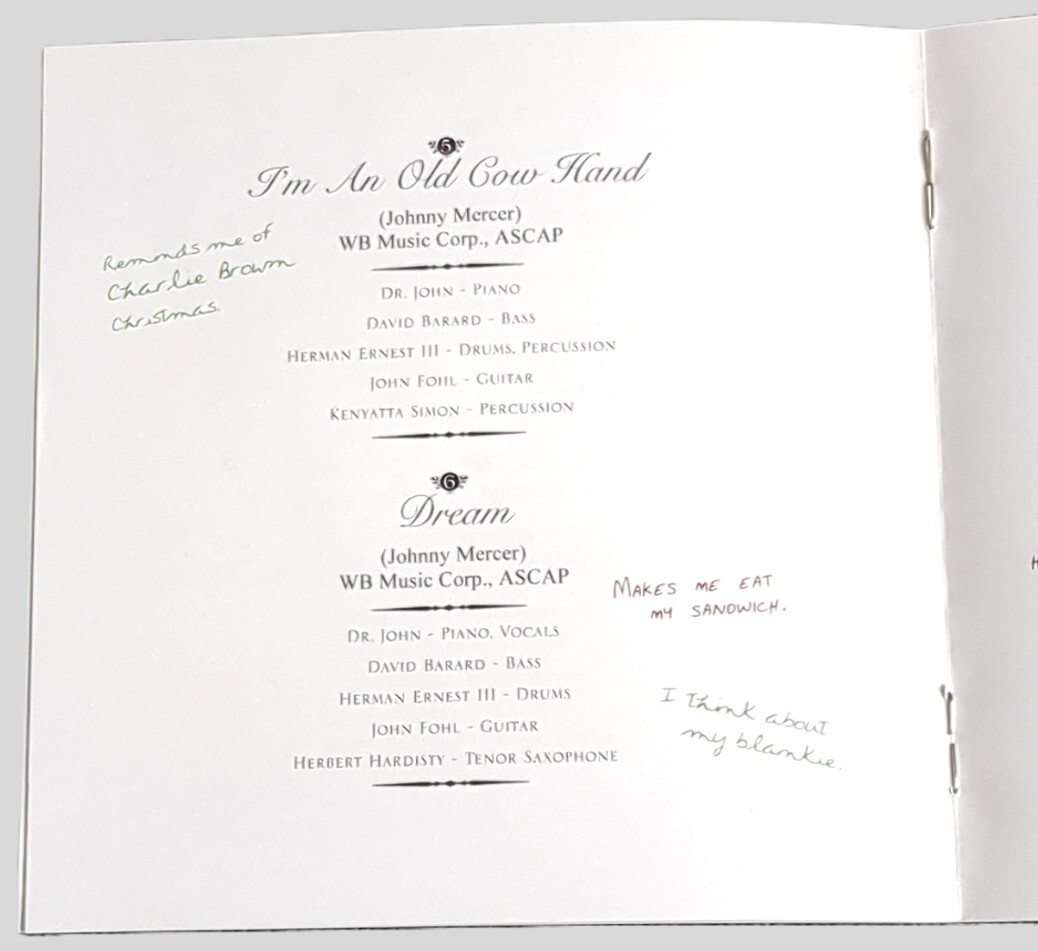 5
I'm An Old Cow Hand
(Johnny Mercer)
WB Music Corp., ASCAP
Reminds me of
Charlie Brown
Christmas.
Dr. John - Piano
David Barard - Bass
Herman Ernest III - Drums, Percussion
John Fohl - Guitar
Kenyatta Simon - Percussion
6
Dream
(Johnny Mercer)
WB Music Corp., ASCAP
MAKES ME EAT
MY SANDWICH.
Dr. John - Piano, Vocals
David Barard - Bass
Herman Ernest III - Drums
John Fohl - Guitar
Herbert Hardisty - Tenor Saxophone
I think about
my blankie.